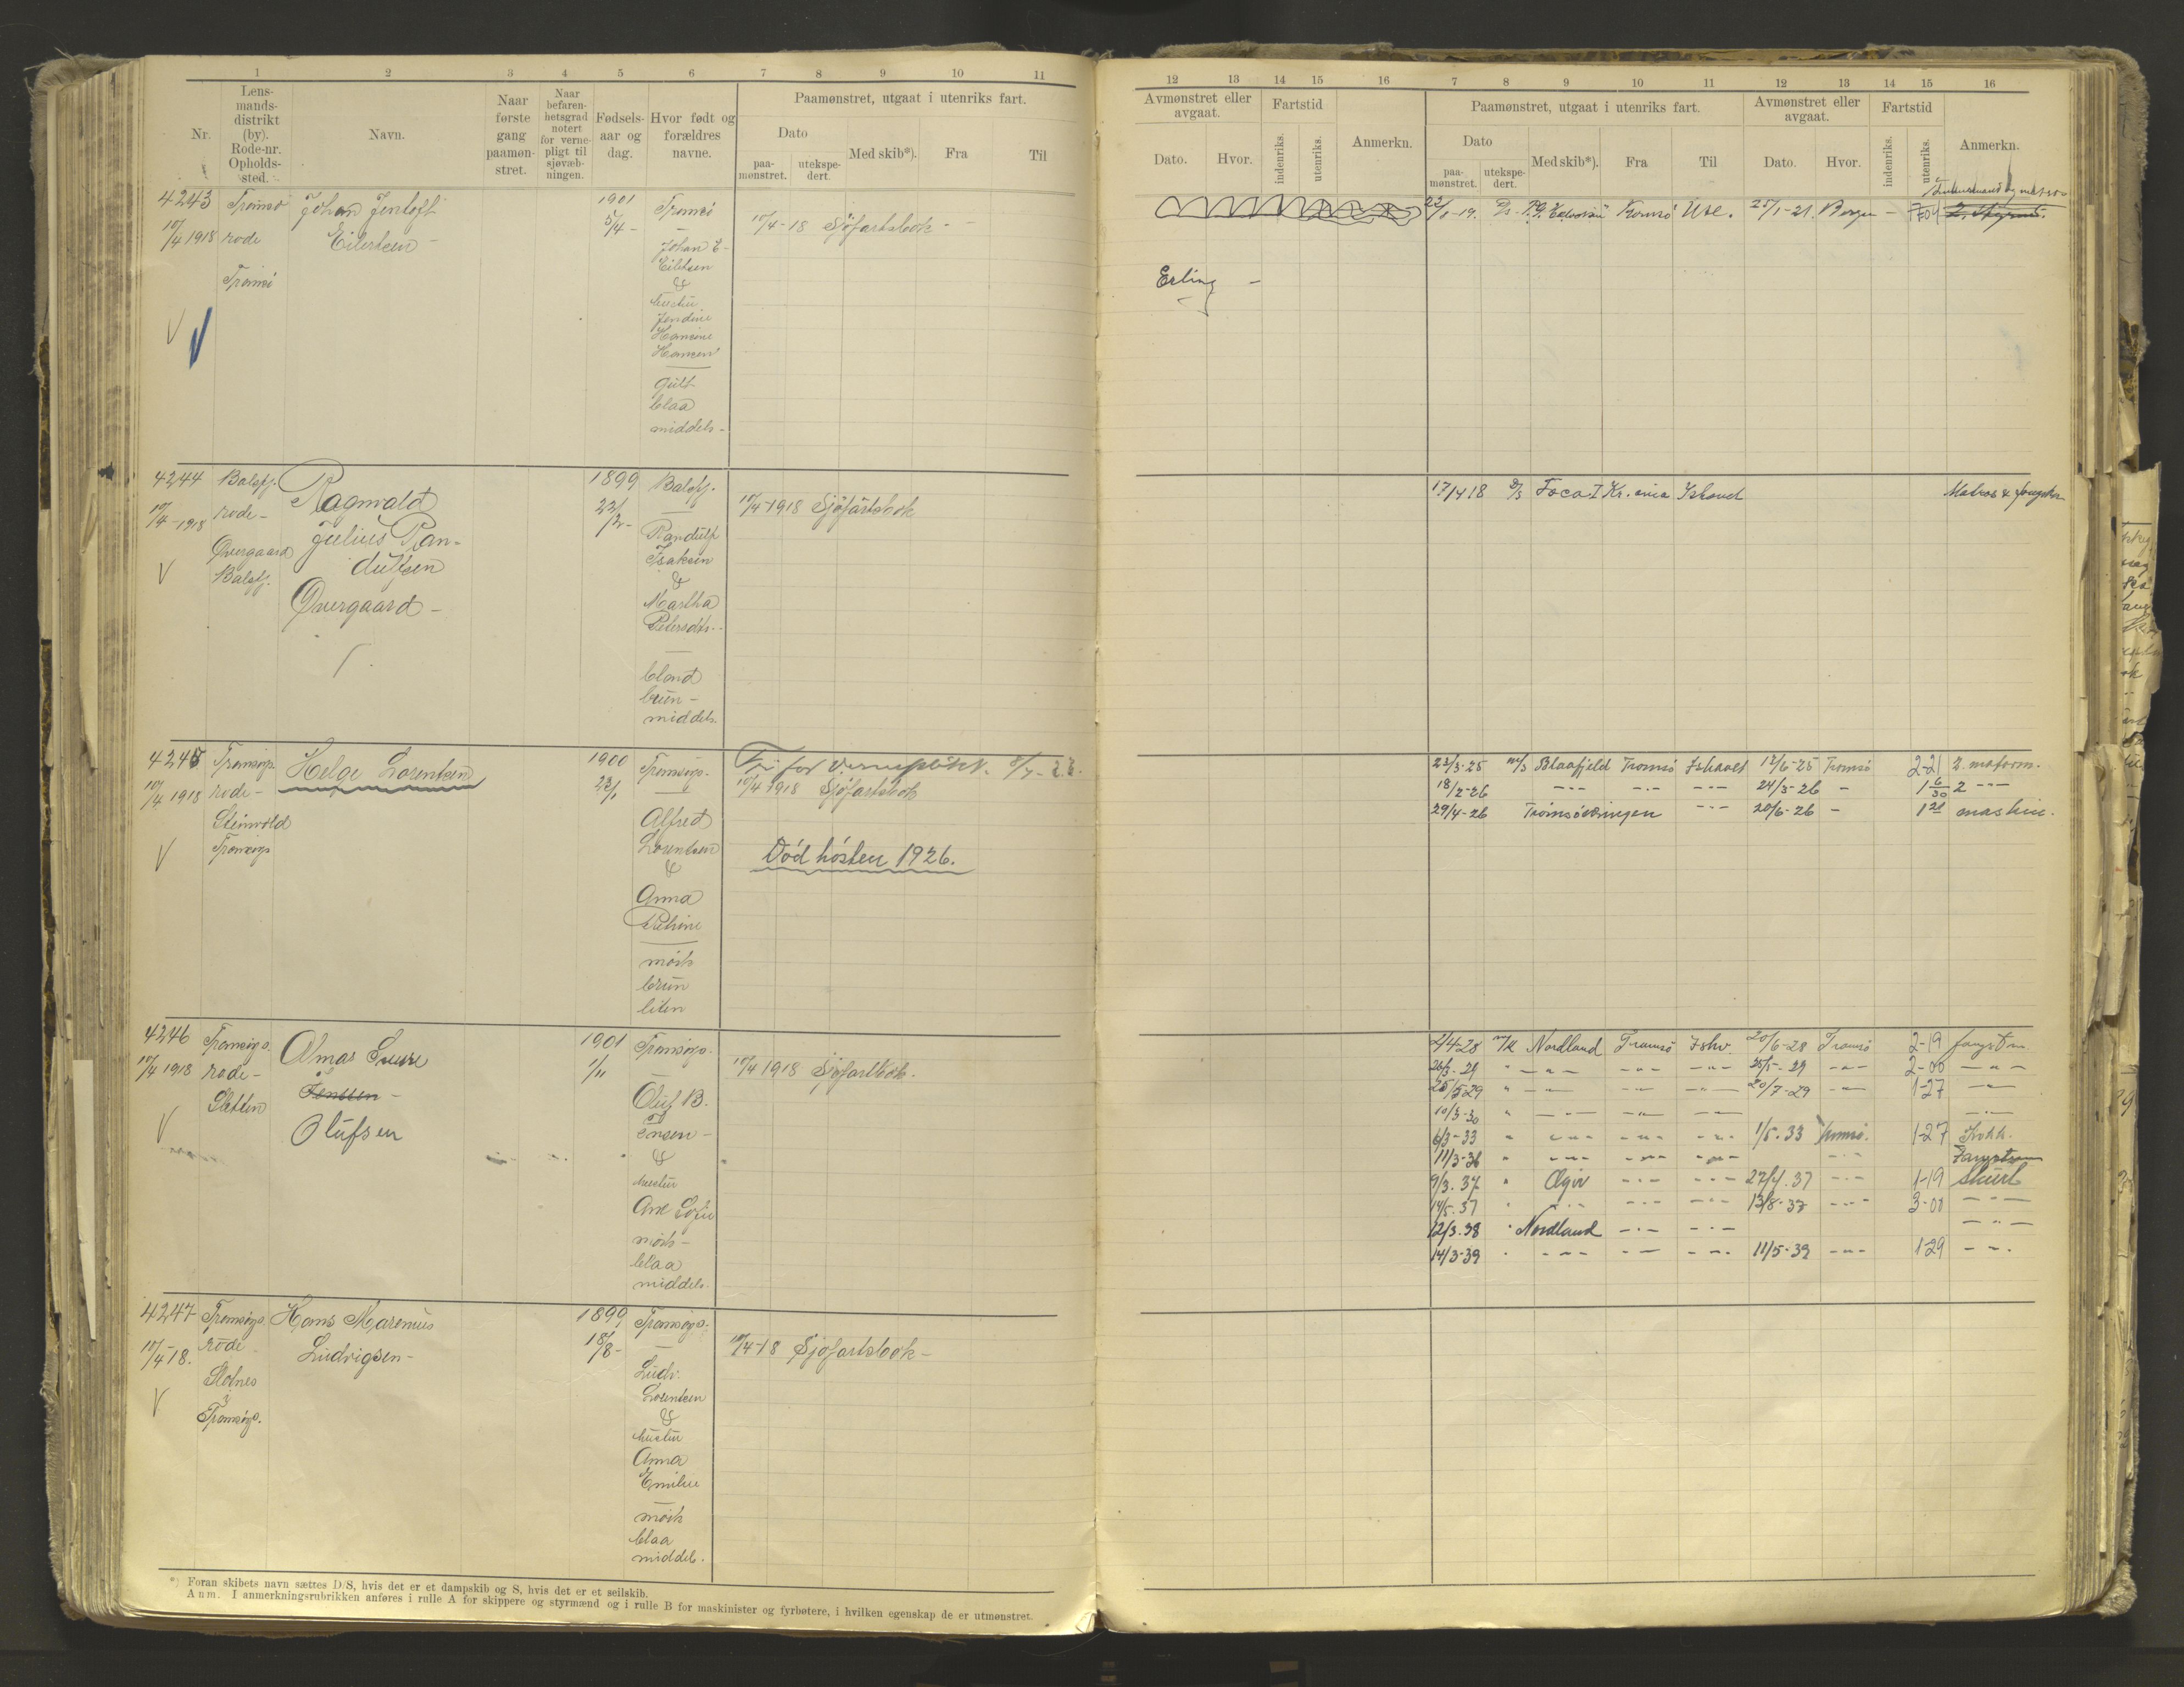 1 2 3 4 5 6 7 8 9 10 11
Nr.
Lens-
mands-
distrikt
(by).
Rode-nr.
Opholds-
sted.
Navn.
Naar
første
gang
paamøn-
stret.
Naar
befaren-
hetsgrad
notert
for verne-
pligt til
sjøvæb-
ningen.
Fødsels-
aar og
dag.
Hvor født og
forældres
navne.
Paamønstret, utgaat i utenriks fart.
Dato
paa-
mønstret.
utekspe-
dert.
Med skib*).
Fra
Til
4243
10/4 1918
Tromsø
rode
Tromsø
Johan Jentoft
Eilertsen -
1901
5/4 -
Tromsø
Johan E-
Eilertsen
&
hustru
Jendine
Hansine
Hansen
gult
blaa
middels -
10/4-18 Sjøfartsbok -
4244
10/4-1918
Balsfj.
rode -
Øvergaard
Balsfj.
Ragnvald
Julius Ran-
dulfsen
Øvergaard -
1899
22/12-
Balsfj.
Randulf
Isaksen
&
Martha
Petersdtr.
blond
brun -
middels
10/4-1918 Sjøfartsbok
4245
10/4 1918
Tromsøys.
rode -
Steinvold
Tromsøys
Helge Lorentsen
1900
23/1
Tromsøys.
Alfred
Lorentsen
&
Anna
Petrine
mørk
brun
liten
Fri for verneplikt. 8/7-22.
10/4 1918 Sjøfartsbok
Død høsten 1926.
4246
10/4 1918
Tromsøys.
rode -
Sletten
Almar Sverre
Jensen -
Olufsen
1901
1/11
Tromsøys.
Oluf B.
Jensen -
&
hustru
Ane Sofie
mørk -
blaa
middels.
10/4 1918 Sjøfartsbok.
4247
10/4-18.
Tromsøys.
rode
Slotnes
i
Tromsøys.
Hans Marenius
Ludvigsen -
1899
18/8-
Tromsøys.
Ludv.
Lorentsen
&
hustru
Anna
Emilie
mørk
blaa
middels.
10/4-18 Sjøfartsbok -
*) Foran skibets navn sættes D/S, hvis det er et dampskib og S, hvis det er et seilskib.
Anm. I anmerkningsrubrikken anføres i rulle A for skippere og styrmænd og i rulle B for maskinister og fyrbøtere, i hvilken egenskap de er utmønstret.
12 13 14 15 16 7 8 9 10 11 12 13 14 15 16
Avmønstret eller
avgaat.
Dato.
Hvor.
Fartstid
indenriks.
utenriks.
Anmerkn.
Paamønstret, utgaat i utenriks fart.
Dato
paa-
mønstret.
utekspe-
dert.
Med skib*).
Fra
Til
Avmønstret eller
avgaat.
Dato.
Hvor.
Fartstid
indenriks.
utenriks.
Anmerkn.
Tromsø Use. Bergen -
Erling -
17/4 18 D/S Foca I Kr.ania Ishavet Matros & fangstm
23/3-25 m/s Blaafjeld Tromsø Ishavet 12/6-25 Tromsø 2-21 2. matorm.
18/2-26 -"- -"- -"- 24/3-26 - 1 6/30 2 -"-
29/4-26 Tromsøværingen -"- 20/6-26 - 1 21 maskin.
2/4-28 m/k Nordland Tromsø Ishv. 20/6-28 Tromsø 2-19 fangstm.
26/3-29 " -"- -"- -"- 25/5-29 -"- 2-00 -"-
25/5-29 " -"- -"- -"- 20/7-29 -"- 1-27 -"-
10/3-30 " -"- -"- -"- -"-
6/3-33 " -"- -"- -"- 1/5.33 Tromsø. 1-27 Kokk.
11/3-36 " -"- -"- -"- -"- Fangstm
9/3.37 " Ægir -"- -"- 27/4.37 -"- 1-19 Stuert
14/5.37 " -"- -"- -"- 13/8-37 -"- 3-00 -"-
12/3.38 " Nordland -"- -"- -"-
14/3-39 " -"- -"- -"- 11/5-39 -"- 1-29 -"-